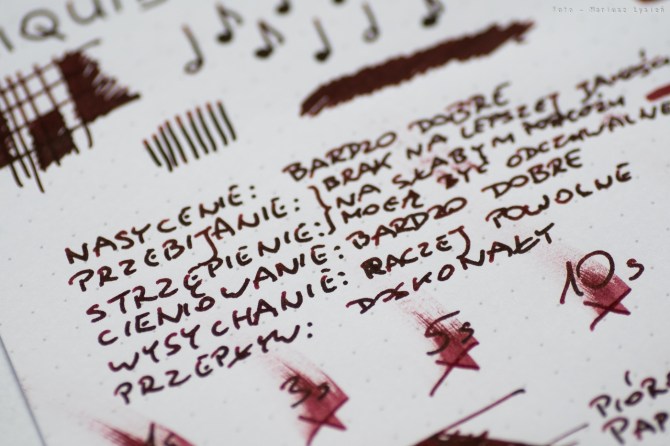 Foto - Mariusz Łysioń
NASYCENIE: BARDZO DOBRE
PRZEBIJANIE: } BRAK NA LEPSZEJ JAKOŚCI
STRZĘPIENIE: } NA SŁABYM MOGĄ BYĆ ODCZUWALN
CIENIOWANIE: BARDZO DOBRE
WYSYCHANIE: RACZEJ POWOLNE
PRZEPŁYW: DOSKONAŁY
1s 3s 5s 10s
PIÓR
PAP